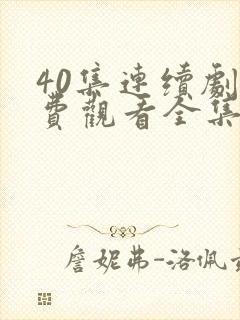 40集連續劇
費觀看全集
詹妮弗-洛佩